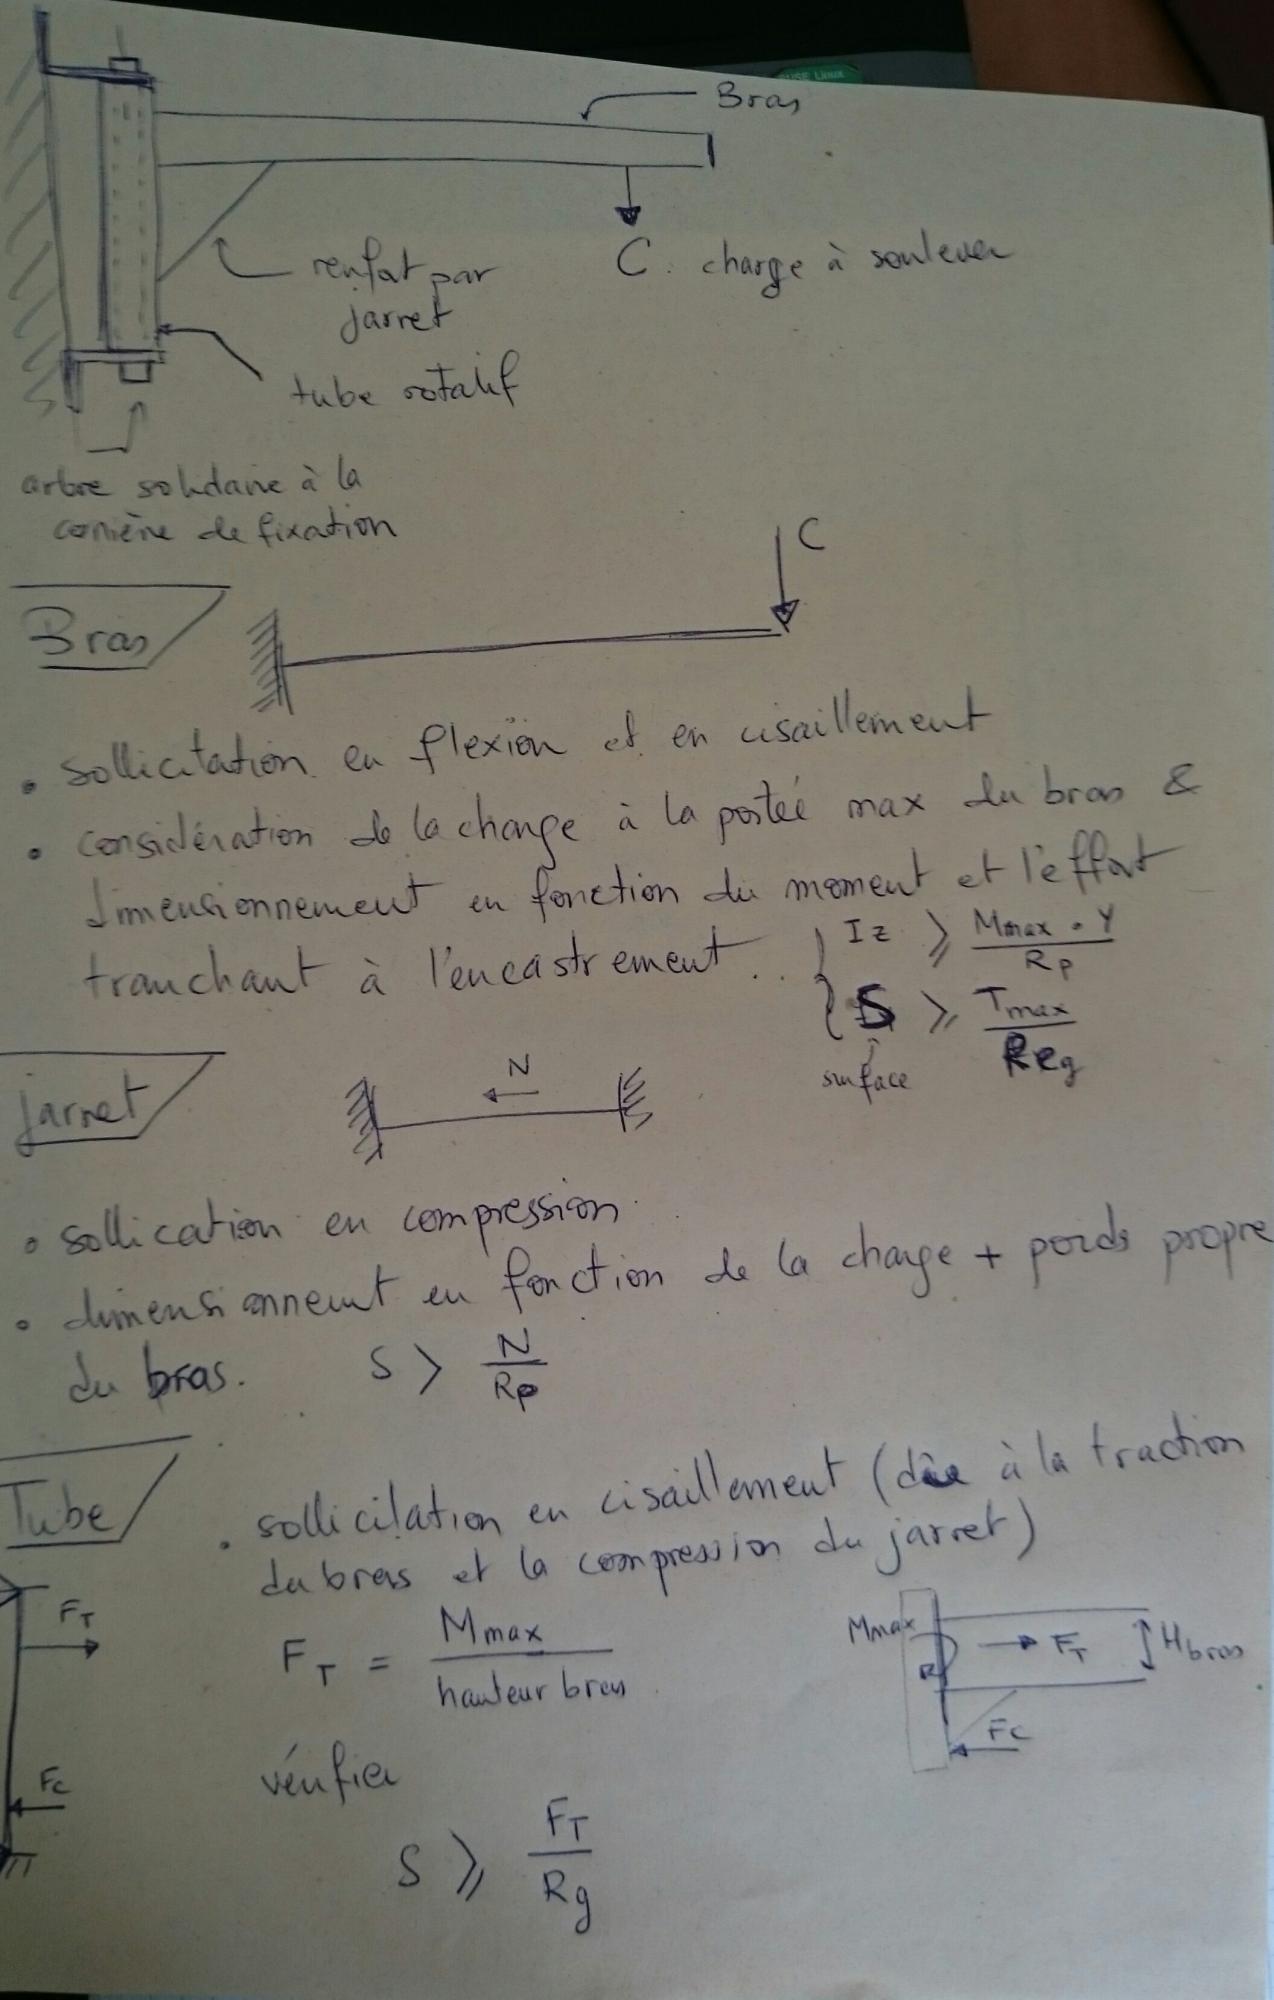 USE Linux
Bras
C : charge à soulever
renfort par
jarret
tube rotatif
arbre solidaire à la
cornière de fixation
C
Bras
• sollicitation en flexion et en cisaillement
• considération de la charge à la portée max du bras &
dimensionnement en fonction du moment et l'effort
tranchant à l'encastrement..
Iz ≥ Mmax . Y / Rp
S ≥ Tmax / Reg
surface
jarret
N
• sollication en compression.
• dimensionnemt en fonction de la charge + poids propre
du bras.
S > N / Rp
Tube
• sollicitation en cisaillement (dûe à la traction
du bras et la compression du jarret)
FT
FT = Mmax / hauteur bras
Mmax
FT
Hbras
Fc
Fc
vérifier
S ≥ FT / Rg